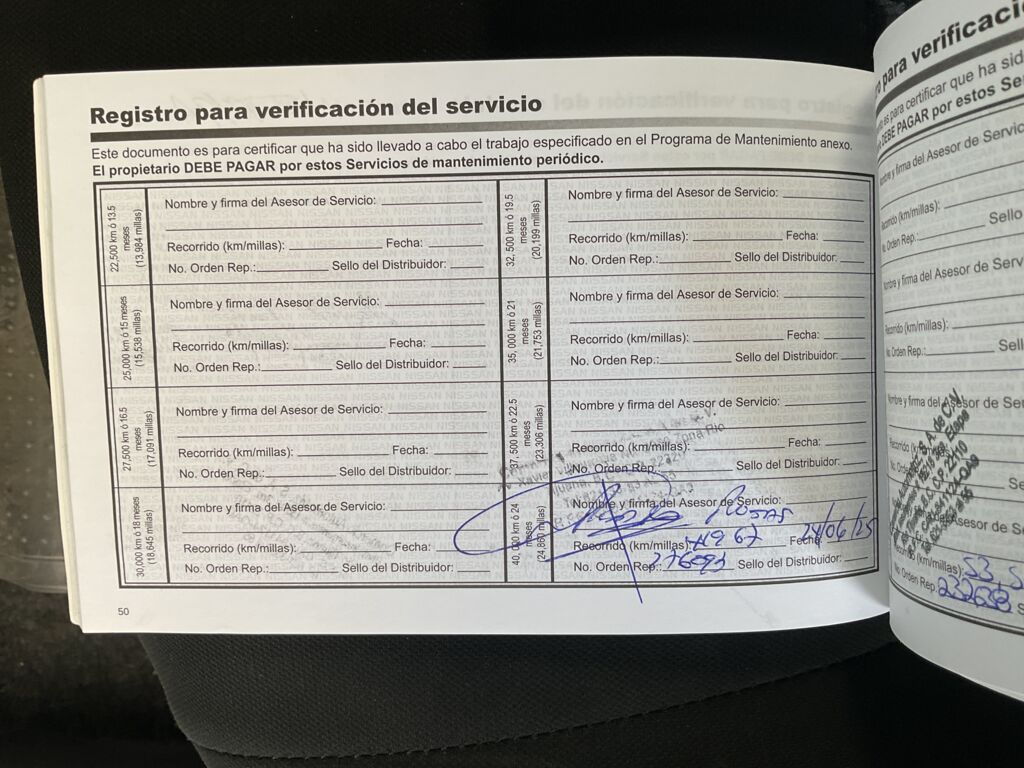 Registro para verificación del servicio
Este documento es para certificar que ha sido llevado a cabo el trabajo especificado en el Programa de Mantenimiento anexo.
El propietario DEBE PAGAR por estos Servicios de mantenimiento periódico.
22,500 km ó 13.5
meses
(13,984 millas)
Nombre y firma del Asesor de Servicio:
Recorrido (km/millas): Fecha:
No. Orden Rep.: Sello del Distribuidor:
25,000 km ó 15 meses
(15,538 millas)
Nombre y firma del Asesor de Servicio:
Recorrido (km/millas): Fecha:
No. Orden Rep.: Sello del Distribuidor:
27,500 km ó 16.5
meses
(17,091 millas)
Nombre y firma del Asesor de Servicio:
Recorrido (km/millas): Fecha:
No. Orden Rep.: Sello del Distribuidor:
30,000 km ó 18 meses
(18,645 millas)
Nombre y firma del Asesor de Servicio:
Recorrido (km/millas): Fecha:
No. Orden Rep.: Sello del Distribuidor:
32, 500 km ó 19.5
meses
(20,199 millas)
Nombre y firma del Asesor de Servicio:
Recorrido (km/millas): Fecha:
No. Orden Rep.: Sello del Distribuidor:
35, 000 km ó 21
meses
(21,753 millas)
Nombre y firma del Asesor de Servicio:
Recorrido (km/millas): Fecha:
No. Orden Rep.: Sello del Distribuidor:
37, 500 km ó 22.5
meses
(23,306 millas)
Nombre y firma del Asesor de Servicio:
Recorrido (km/millas): Fecha:
No. Orden Rep.: Sello del Distribuidor:
40, 000 km ó 24
meses
(24,860 millas)
Nombre y firma del Asesor de Servicio:
Recorrido (km/millas): Fecha: 24/06/25
No. Orden Rep.: Sello del Distribuidor:
50
para verificaci
es para certificar que ha sid
DEBE PAGAR por estos Se
Nombre y firma del Asesor de Servic
Recorrido (km/millas):
No. Orden Rep.: Sello
Nombre y firma del Asesor de Serv
Recorrido (km/millas):
No. Orden Rep.: Sell
Nombre y firma del Asesor de Se
(km/millas): 53,5
No. Orden Rep. 232638 S